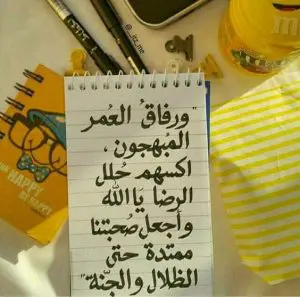 @_itz.me
"ورفاقُ العُمر
المُبهجون،
اكسهم حُلل
الرضا يَا الله
وأجعل صُحبتنا
ممتدة حتىٰ
الظلال والجنّة"
m
HAPPY